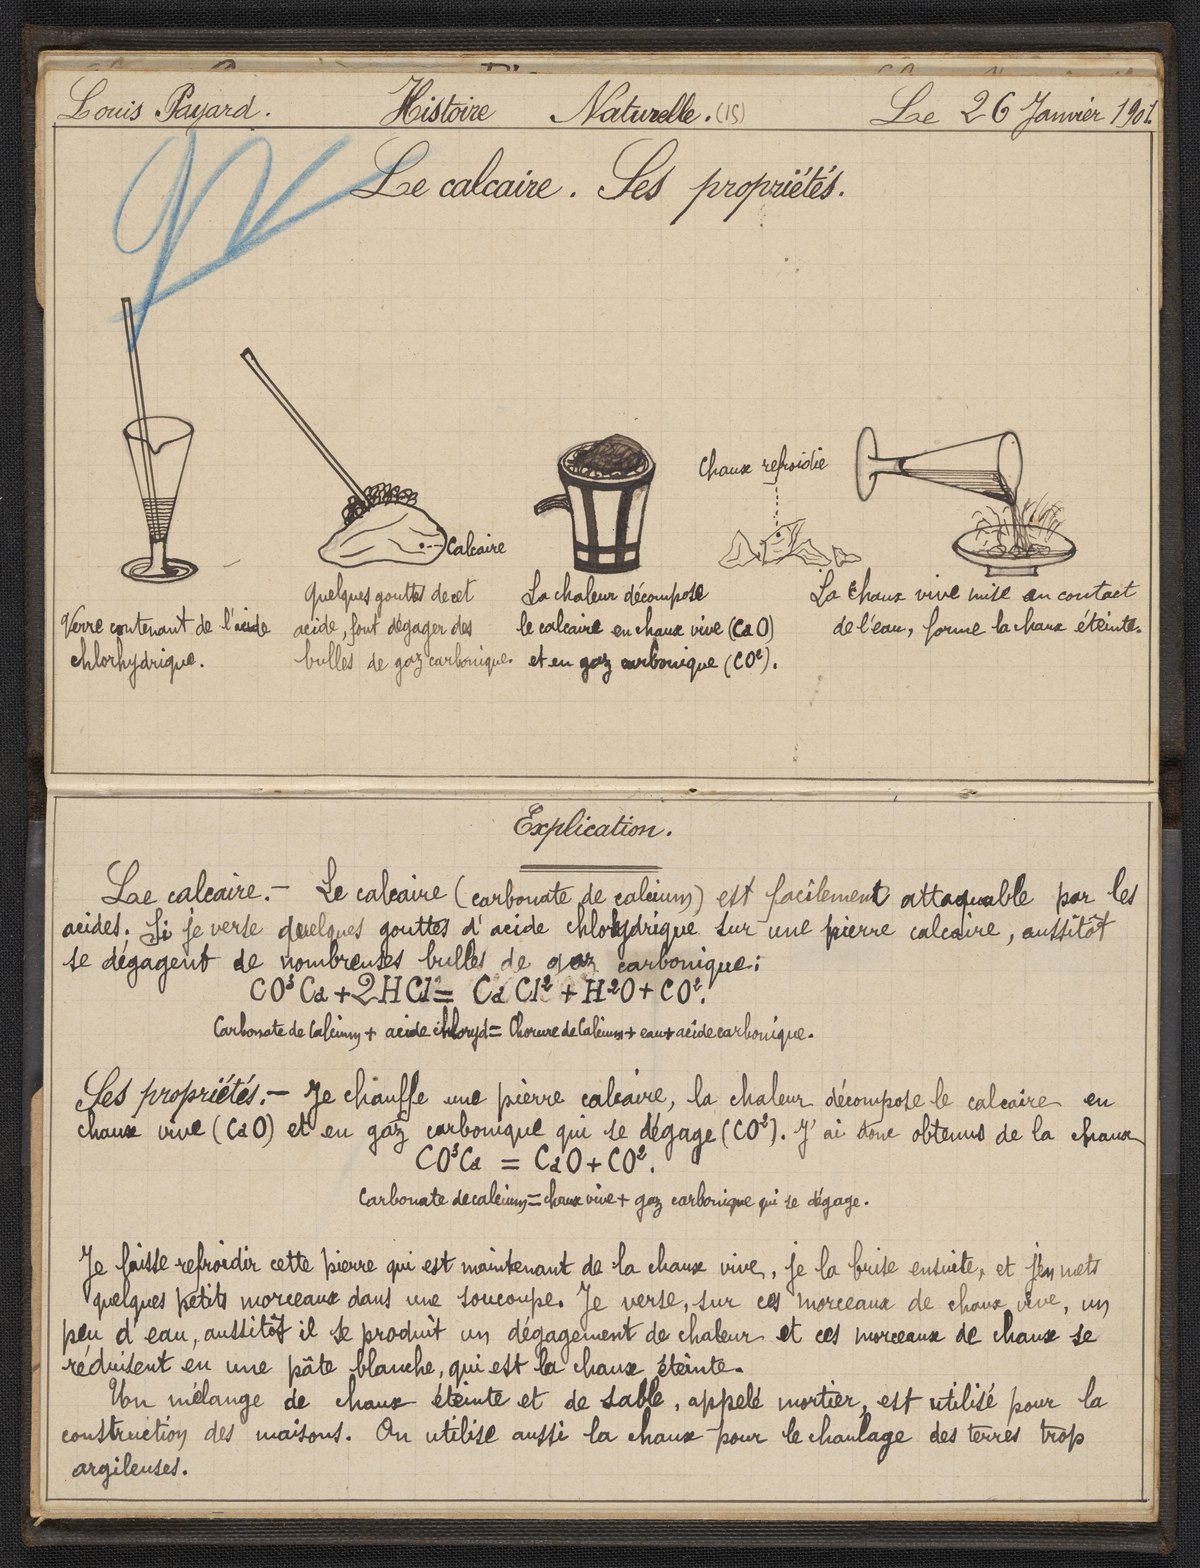 Louis Payard. Histoire Naturelle. (15) Le 26 Janvier 1901.
Le calcaire. Ses propriétés.
Chaux refroidie
Calcaire
Verre contenant de l'acide
chlorhydrique.
Quelques gouttes de cet
acide, font dégager des
bulles de gaz carbonique.
La chaleur décompose
le calcaire en chaux vive (CaO)
et en gaz carbonique (CO²).
La chaux vive mise en contact
de l'eau, forme la chaux éteinte.
Explication.
Le calcaire. – Le calcaire (carbonate de calcium) est facilement attaquable par les
acides. Si je verse quelques gouttes d'acide chlohydrique sur une pierre calcaire, aussitôt
se dégagent de nombreuses bulles de gaz carbonique:
CO³Ca + 2HCl = CaCl² + H²O + CO².
Carbonate de Calcium + acide chloryd = Chorure de Calcium + eau + acide carbonique.
Ses propriétés. – Je chauffe une pierre calcaire, la chaleur décompose le calcaire en
chaux vive (CaO) et en gaz carbonique qui se dégage (CO²). J'ai donc obtenus de la chaux
CO³Ca = CaO + CO².
Carbonate de calcium = chaux vive + gaz carbonique qui se dégage.
Je laisse refroidir cette pierre qui est maintenant de la chaux vive, je la brise ensuite, et j'en mets
quelques petits morceaux dans une soucoupe. Je verse, sur ces morceaux de chaux vive, un
peu d'eau, aussitôt il se produit un dégagement de chaleur et ces morceaux de chaux se
réduisent en une pâte blanche, qui est la chaux éteinte.
Un mélange de chaux éteinte et de sable, appelé mortier, est utilisé pour la
construction des maisons. On utilise aussi la chaux pour le chaulage des terres trop
argileuses.